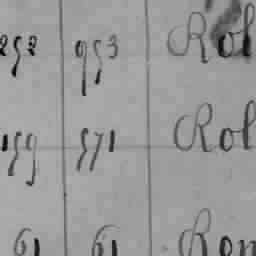 252 953 Rol
159 571 Rol
61 61 Rom